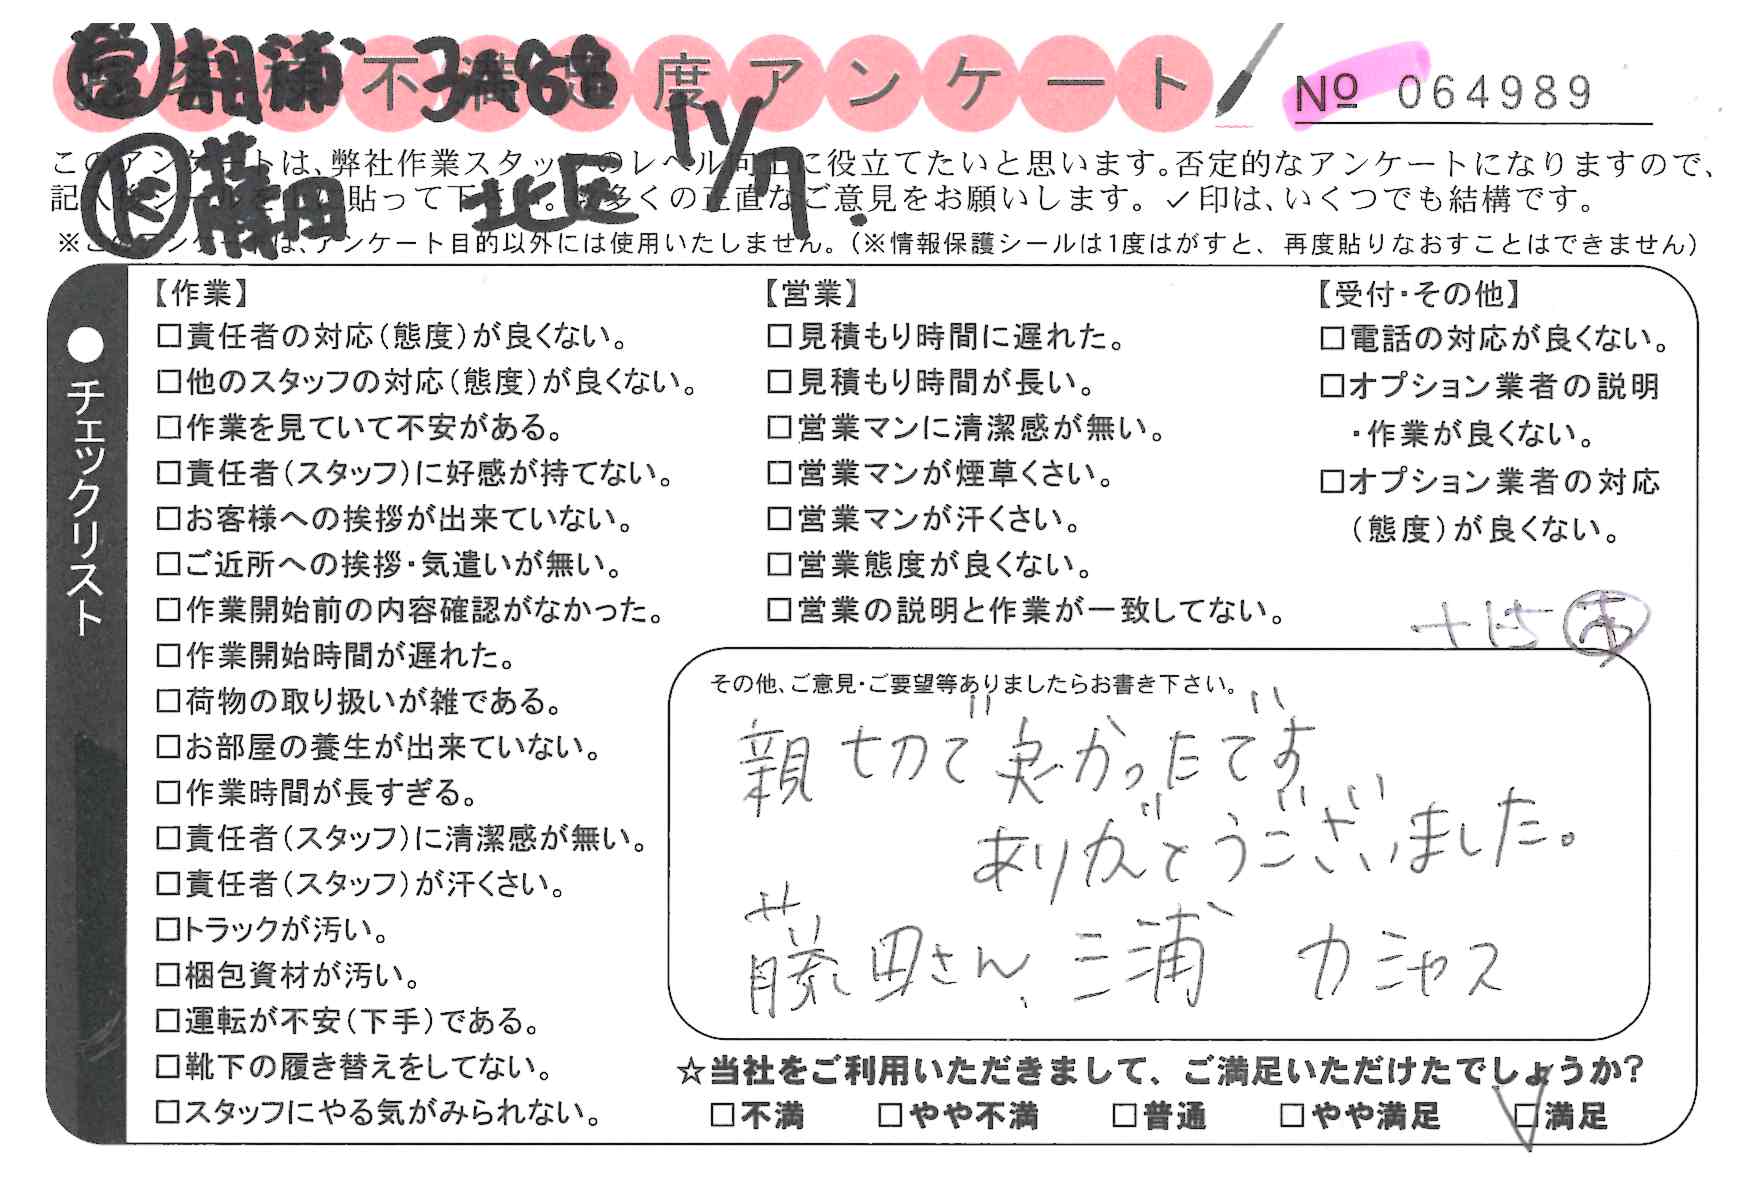 営 翻浦 3A88
不満足度アンケート
No 064989
11/7.
K 藤田 北区
このアンケートは、弊社作業スタッフのレベル向上に役立てたいと思います。否定的なアンケートになりますので、
記入後シールを 貼って下さい。 多くの正直なご意見をお願いします。✓印は、いくつでも結構です。
※このアンケートは、アンケート目的以外には使用いたしません。(※情報保護シールは1度はがすと、再度貼りなおすことはできません)
●チェックリスト
【作業】
□責任者の対応(態度)が良くない。
□他のスタッフの対応(態度)が良くない。
□作業を見ていて不安がある。
□責任者(スタッフ)に好感が持てない。
□お客様への挨拶が出来ていない。
□ご近所への挨拶・気遣いが無い。
□作業開始前の内容確認がなかった。
□作業開始時間が遅れた。
□荷物の取り扱いが雑である。
□お部屋の養生が出来ていない。
□作業時間が長すぎる。
□責任者(スタッフ)に清潔感が無い。
□責任者(スタッフ)が汗くさい。
□トラックが汚い。
□梱包資材が汚い。
□運転が不安(下手)である。
□靴下の履き替えをしてない。
□スタッフにやる気がみられない。
【営業】
□見積もり時間に遅れた。
□見積もり時間が長い。
□営業マンに清潔感が無い。
□営業マンが煙草くさい。
□営業マンが汗くさい。
□営業態度が良くない。
□営業の説明と作業が一致してない。
【受付・その他】
□電話の対応が良くない。
□オプション業者の説明
・作業が良くない。
□オプション業者の対応
(態度)が良くない。
+15 あ
その他、ご意見・ご要望等ありましたらお書き下さい。
親切で良かったです
ありがとうございました。
藤田さん、三浦 カミヤス
☆当社をご利用いただきまして、ご満足いただけたでしょうか?
□不満 □やや不満 □普通 □やや満足 ☑満足